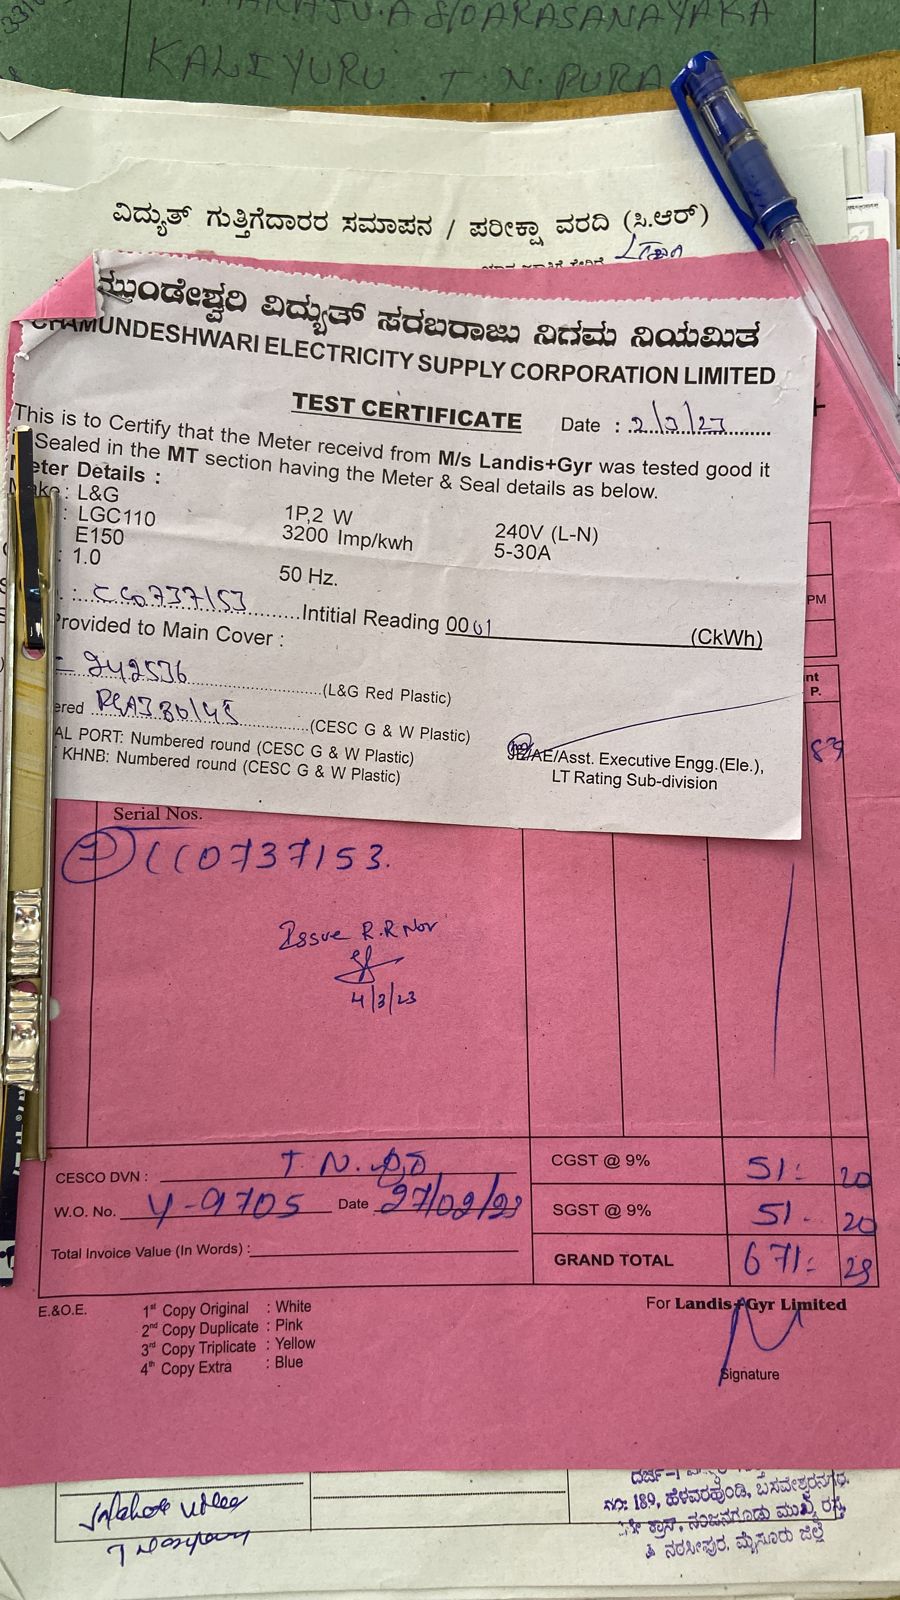 KALIYURU T. N. PURA
ವಿದ್ಯುತ್ ಗುತ್ತಿಗೆದಾರರ ಸಮಾಪನ / ಪರೀಕ್ಷಾ ವರದಿ (ಸಿ.ಆರ್)
ಮುಂಡೇಶ್ವರಿ ವಿದ್ಯುತ್ ಸರಬರಾಜು ನಿಗಮ ನಿಯಮಿತ
CHAMUNDESHWARI ELECTRICITY SUPPLY CORPORATION LIMITED
TEST CERTIFICATE Date : 2/3/23
This is to Certify that the Meter receivd from M/s Landis+Gyr was tested good it
Sealed in the MT section having the Meter & Seal details as below.
Meter Details :
Make : L&G
: LGC110 1P,2 W 240V (L-N)
E150 3200 Imp/kwh 5-30A
: 1.0 50 Hz.
: CC0737153 Intitial Reading 0001 (CkWh)
Provided to Main Cover :
942536 (L&G Red Plastic)
ered (CESC G & W Plastic)
AL PORT: Numbered round (CESC G & W Plastic)
KHNB: Numbered round (CESC G & W Plastic)
JE/AE/Asst. Executive Engg.(Ele.),
LT Rating Sub-division
PM
nt
P.
83
Serial Nos.
1 CC0737153.
Issue R.R Nor
4/3/23
CESCO DVN : T. N. CGST @ 9% 51. 20
W.O. No. Y-9705 Date 27/02/23 SGST @ 9% 51. 20
Total Invoice Value (In Words) : GRAND TOTAL 671. 23
E.&O.E. 1st Copy Original : White For Landis+Gyr Limited
2nd Copy Duplicate : Pink
3rd Copy Triplicate : Yellow
4th Copy Extra : Blue
Signature
ನಂ: 189, ಹೆಳವರಹುಂಡಿ, ಬಸವೇಶ್ವರನಗರ,
ಕ್ರಾಸ್, ನಂಜನಗೂಡು ಮುಖ್ಯ ರಸ್ತೆ,
ತಿ ನರಸೀಪುರ, ಮೈಸೂರು ಜಿಲ್ಲೆ